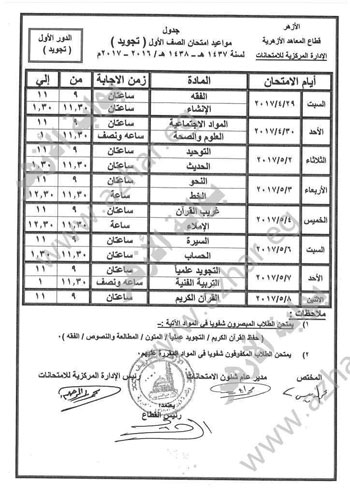 الأزهر
قطاع المعاهد الأزهرية
الإدارة المركزية للامتحانات
جدول
مواعيد امتحان الصف الأول ( تجويد )
لسنة ١٤٣٧ هـ - ١٤٣٨ هـ / ٢٠١٦ - ٢٠١٧م
الدور الأول
( تجويد )
أيام الامتحان المادة زمن الاجابة من إلي
السبت ٢٠١٧/٤/٢٩ الفقه ساعتان ٩ ١١
الإنشاء ساعتان ١١,٣٠ ١,٣٠
الأحد ٢٠١٧/٤/٣٠ المواد الاجتماعية ساعتان ٩ ١١
العلوم والصحة ساعة ونصف ١١,٣٠ ١
الثلاثاء ٢٠١٧/٥/٢ التوحيد ساعتان ٩ ١١
الحديث ساعتان ١١,٣٠ ١,٣٠
الأربعاء ٢٠١٧/٥/٣ النحو ساعتان ٩ ١١
الخط ساعة ١١,٣٠ ١٢,٣٠
الخميس ٢٠١٧/٥/٤ غريب القرآن ساعتان ٩ ١١
الإملاء ساعة ١١,٣٠ ١٢,٣٠
السبت ٢٠١٧/٥/٦ السيرة ساعتان ٩ ١١
الحساب ساعتان ١١,٣٠ ١,٣٠
الأحد ٢٠١٧/٥/٧ التجويد علمياً ساعتان ٩ ١١
التربية الفنية ساعة ونصف ١١,٣٠ ١
الاثنين ٢٠١٧/٥/٨ القرآن الكريم ساعتان ٩ ١١
ملاحظات :
(١) يمتحن الطلاب المبصرون شفويا في المواد الآتية :-
( حفظ القرآن الكريم / التجويد عملياً / المتون / المطالعة والنصوص / الفقه ) .
(٢) يمتحن الطلاب المكفوفون شفويا في المواد المقررة عليهم.
المختص
مدير عام شئون الامتحانات
رئيس الإدارة المركزية للامتحانات
يعتمد،
رئيس القطاع